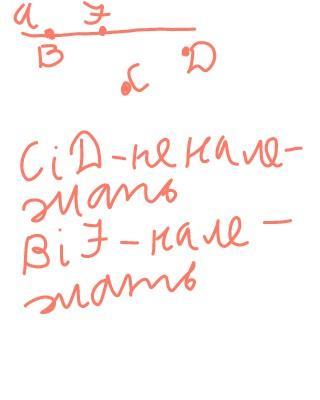 a F
B D
C
C i D - не нале-
жать
B i F - нале -
жать